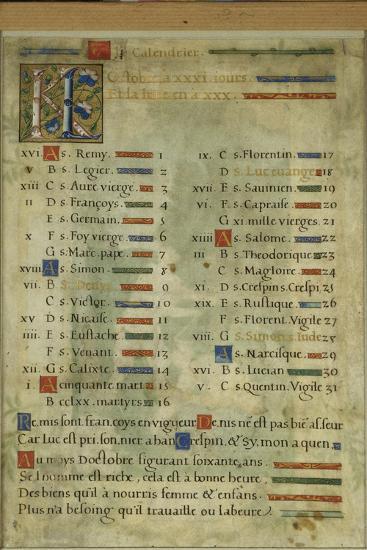 Le Calendrier.
Octobre a xxxi. jours.
Et la lune en a xxx.
xvi. A s. Remy. 1
v B s. Legier. 2
xiii C s. Aure vierge. 3
ii D s. Françoys. 4
E s. Germain. 5
x F s. Foy vierge 6
G s. Marc. pape. 7
xviii A s. Simon. 8
vii. B S. Denys. 9
C s. Victor. 10
xv D s. Nicaise. 11
iiii. E s. Eustache. 12
F s. Venant. 13
xii. G s. Calixte. 14
i. A cinquante mart. 15
B cclxx. martyrs 16
ix. C s. Florentin. 17
D s. Luc euange. 18
xvii. E s. Sauinien. 19
vi. F s. Capraise. 20
G xi. mille vierges. 21
xiiii A s. Salome. 22
iii B s. Theodorique. 23
C s. Magloire. 24
xi. D s. Crespin s. Crespi 25
xix. E s. Rustique. 26
F s. Florent. Vigile 27
viii. G s. Simon s. Iude 28
A s. Narcisque. 29
xvi. B s. Lucian 30
v. C s. Quentin. Vigile 31
Remis sont francoys en vigueur Denis ne est pas bie asseur
Car Luc est prisonnier a han Crespin, & sy mon a quen
Au moys Doctobre figurant soixante ans.
Se l'homme est riche, cela est à bonne heure,
Des biens qu'il à nourris femme & enfans.
Plus n'a besoing qu'il trauaille ou labeure